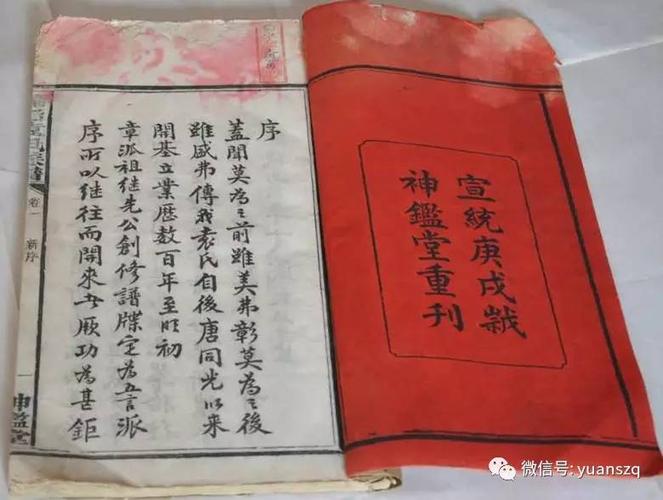 宣統庚戌歲
神鑑堂重刊
序
蓋聞莫為之前雖美弗彰莫為之後
雖盛弗傳我袁氏自後唐同光以來
開基立業歷数百年至明初
章派祖继先公創修譜牒定為五言派
序所以继往而開來厥功為甚鉅
卷一
新序
一
神鑑堂
微信号: yuanszq